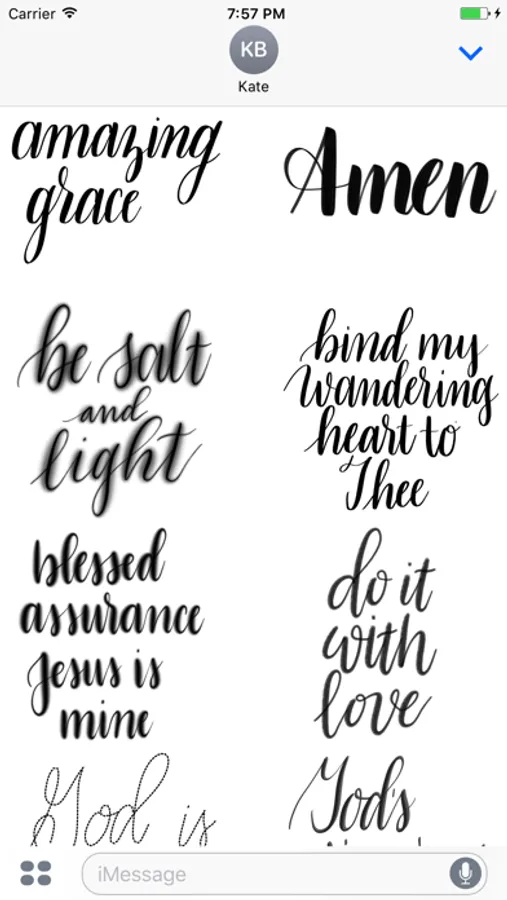 Carrier 7:57 PM
KB
Kate
amazing
grace
Amen
be salt
and
light
bind my
wandering
heart to
Thee
blessed
assurance
Jesus is
mine
do it
with
love
God is
God's
iMessage